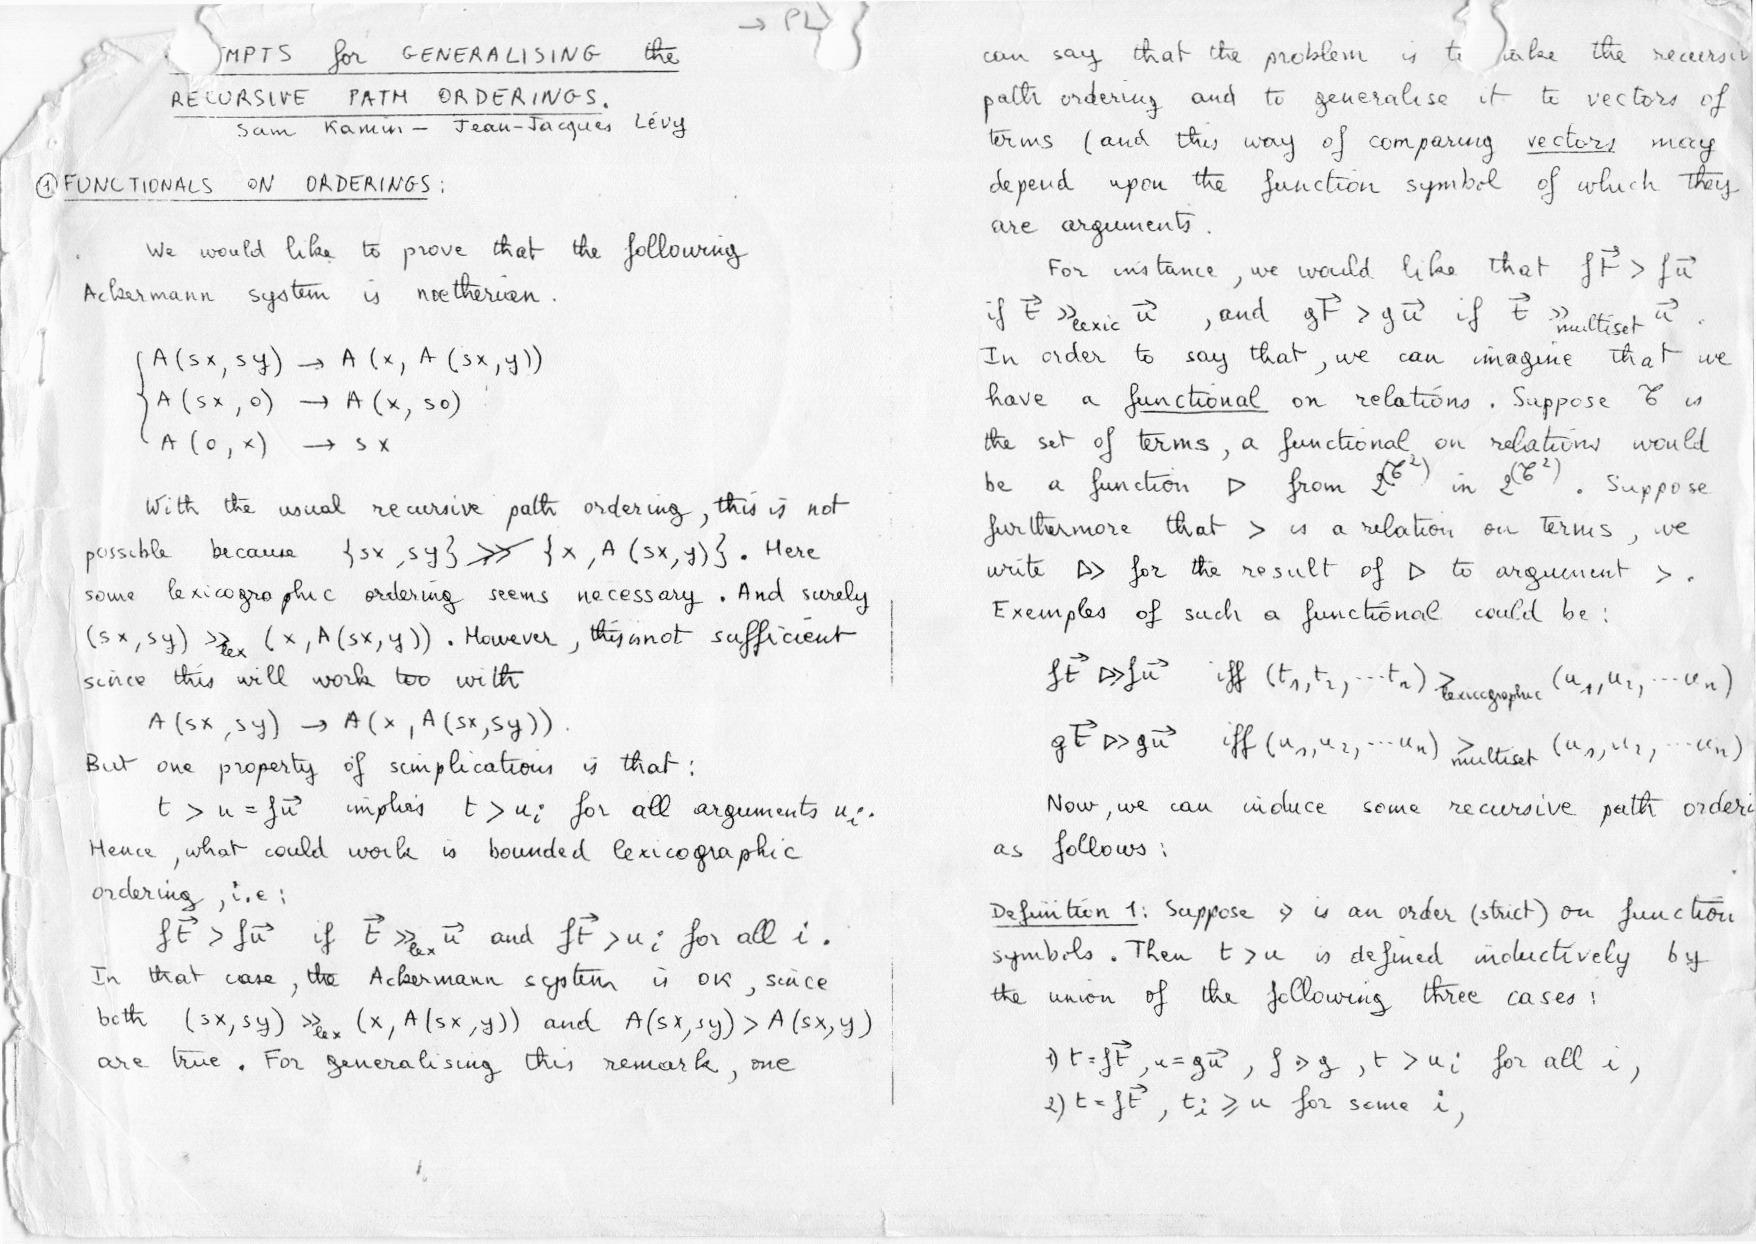 → PL
MPTS for GENERALISING the
RECURSIVE PATH ORDERINGS.
Sam Kamin – Jean-Jacques Lévy
① FUNCTIONALS ON ORDERINGS :
We would like to prove that the following
Ackermann system is noetherian.
A(sx, sy) → A(x, A(sx, y))
A(sx, 0) → A(x, s0)
A(0, x) → sx
With the usual recursive path ordering, this is not
possible because {sx, sy} ≫̸ {x, A(sx, y)}. Here
some lexicographic ordering seems necessary. And surely
(sx, sy) ≫lex (x, A(sx, y)). However, this is not sufficient
since this will work too with
A(sx, sy) → A(x, A(sx, sy)).
But one property of simplications is that :
t > u = fu⃗ implies t > uᵢ for all arguments uᵢ.
Hence, what could work is bounded lexicographic
ordering, i.e :
ft⃗ > fu⃗ if t⃗ ≫lex u⃗ and ft⃗ > uᵢ for all i.
In that case, the Ackermann system is OK, since
both (sx, sy) ≫lex (x, A(sx, y)) and A(sx, sy) > A(sx, y)
are true. For generalising this remark, one
can say that the problem is to the recursiv
path ordering and to generalise it to vectors of
terms (and this way of comparing vectors may
depend upon the function symbol of which they
are arguments.
For instance, we would like that ft⃗ > fu⃗
if t⃗ ≫lexic u⃗, and gt⃗ > gu⃗ if t⃗ ≫multiset u⃗.
In order to say that, we can imagine that we
have a functional on relations. Suppose 𝒯 is
the set of terms, a functional on relations would
be a function ▷ from 2^(𝒯²) in 2^(𝒯²). Suppose
furthermore that > is a relation on terms, we
write ▷> for the result of ▷ to argument >.
Exemples of such a functional could be :
ft⃗ ▷> fu⃗ iff (t₁, t₂, ... tₙ) >lexicographic (u₁, u₂, ... uₙ)
gt⃗ ▷> gu⃗ iff (u₁, u₂, ... uₙ) >multiset (u₁, u₂, ... uₙ)
Now, we can induce some recursive path orderi
as follows :
Definition 1 : Suppose ⋗ is an order (strict) on function
symbols. Then t > u is defined inductively by
the union of the following three cases :
1) t = ft⃗, u = gu⃗, f ⋗ g, t > uᵢ for all i,
2) t = ft⃗, tᵢ ⩾ u for some i,